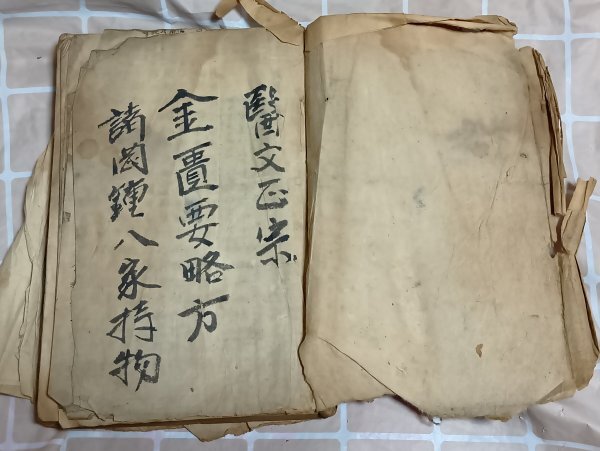 醫文正宗
金匱要略方
諸岡鍾八家持物